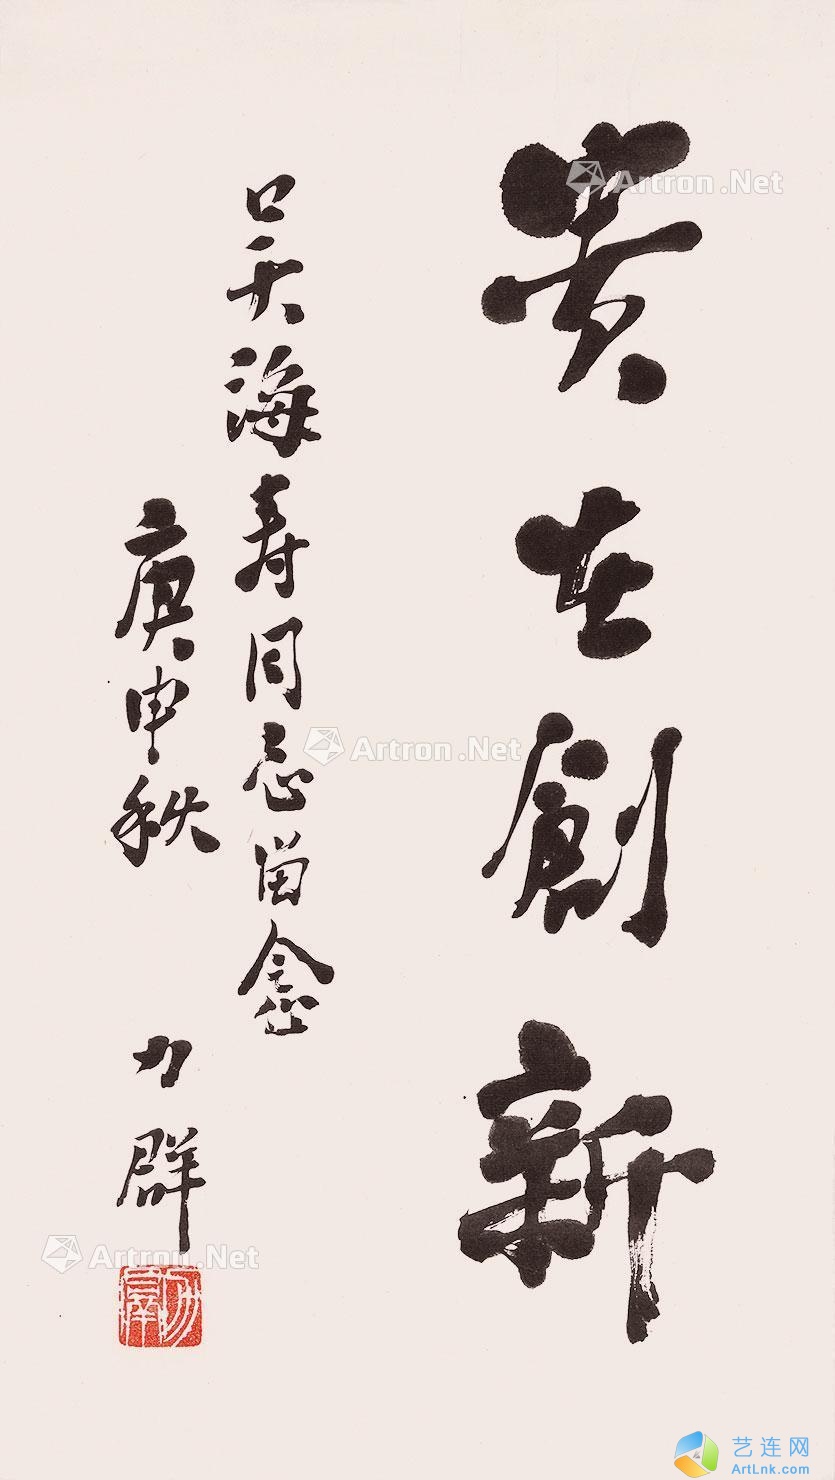 贵在創新
吴海寿同志留念
庚申秋
力群
力群
Artron.Net
Artron.Net
Artron.Net
艺连网
ArtLnk.com